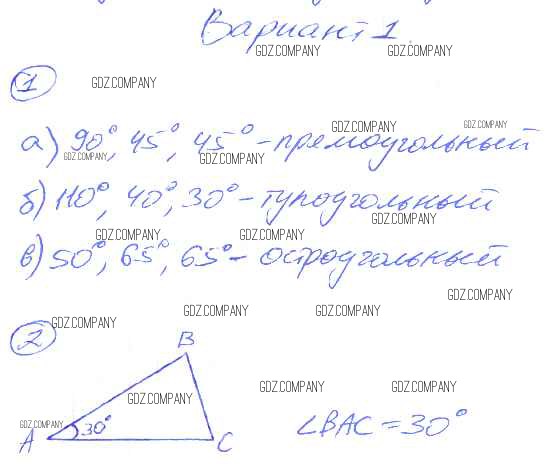 Вариант 1
GDZ.COMPANY GDZ.COMPANY
1 GDZ.COMPANY
GDZ.COMPANY GDZ.COMPANY
а) 90°, 45°, 45° - прямоугольный
GDZ.COMPANY GDZ.COMPANY
б) 110°, 40°, 30° - тупоугольный
GDZ.COMPANY
GDZ.COMPANY GDZ.COMPANY
в) 50°, 65°, 65° - остроугольный
GDZ.COMPANY
GDZ.COMPANY GDZ.COMPANY
2 GDZ.COMPANY
B
GDZ.COMPANY GDZ.COMPANY GDZ.COMPANY
GDZ.COMPANY 30° ∠BAC = 30°
A C